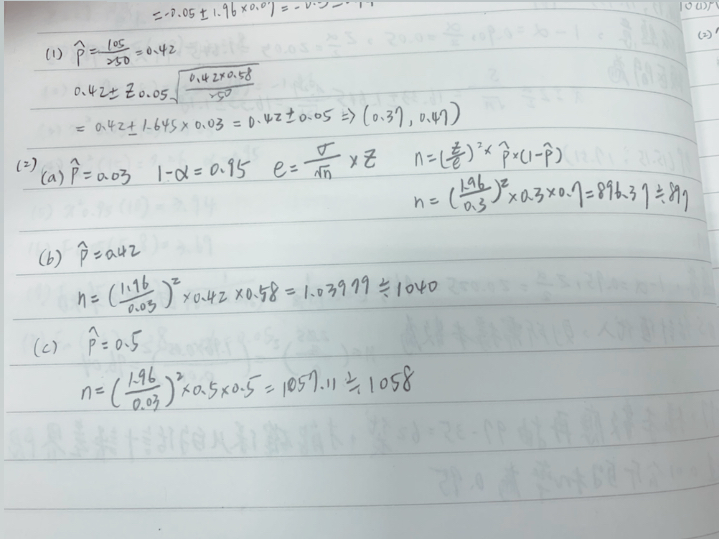 = -0.05 ± 1.96 × 0.07 =
(1) p̂ = 105/250 = 0.42
0.42 ± Z 0.05 √(0.42×0.58/250)
= 0.42 ± 1.645 × 0.03 = 0.42 ± 0.05 ⇒ (0.37, 0.47)
(2)
(a) p̂ = 0.03 1-α = 0.95 e = σ/√n × Z n = (z/e)² × p̂ × (1-p̂)
n = (1.96/0.3)² × 0.3 × 0.7 = 896.37 ≒ 897
(b) p̂ = 0.42
n = (1.96/0.03)² × 0.42 × 0.58 = 1.03979 ≒ 1040
(c) p̂ = 0.5
n = (1.96/0.03)² × 0.5 × 0.5 = 1057.11 ≒ 1058